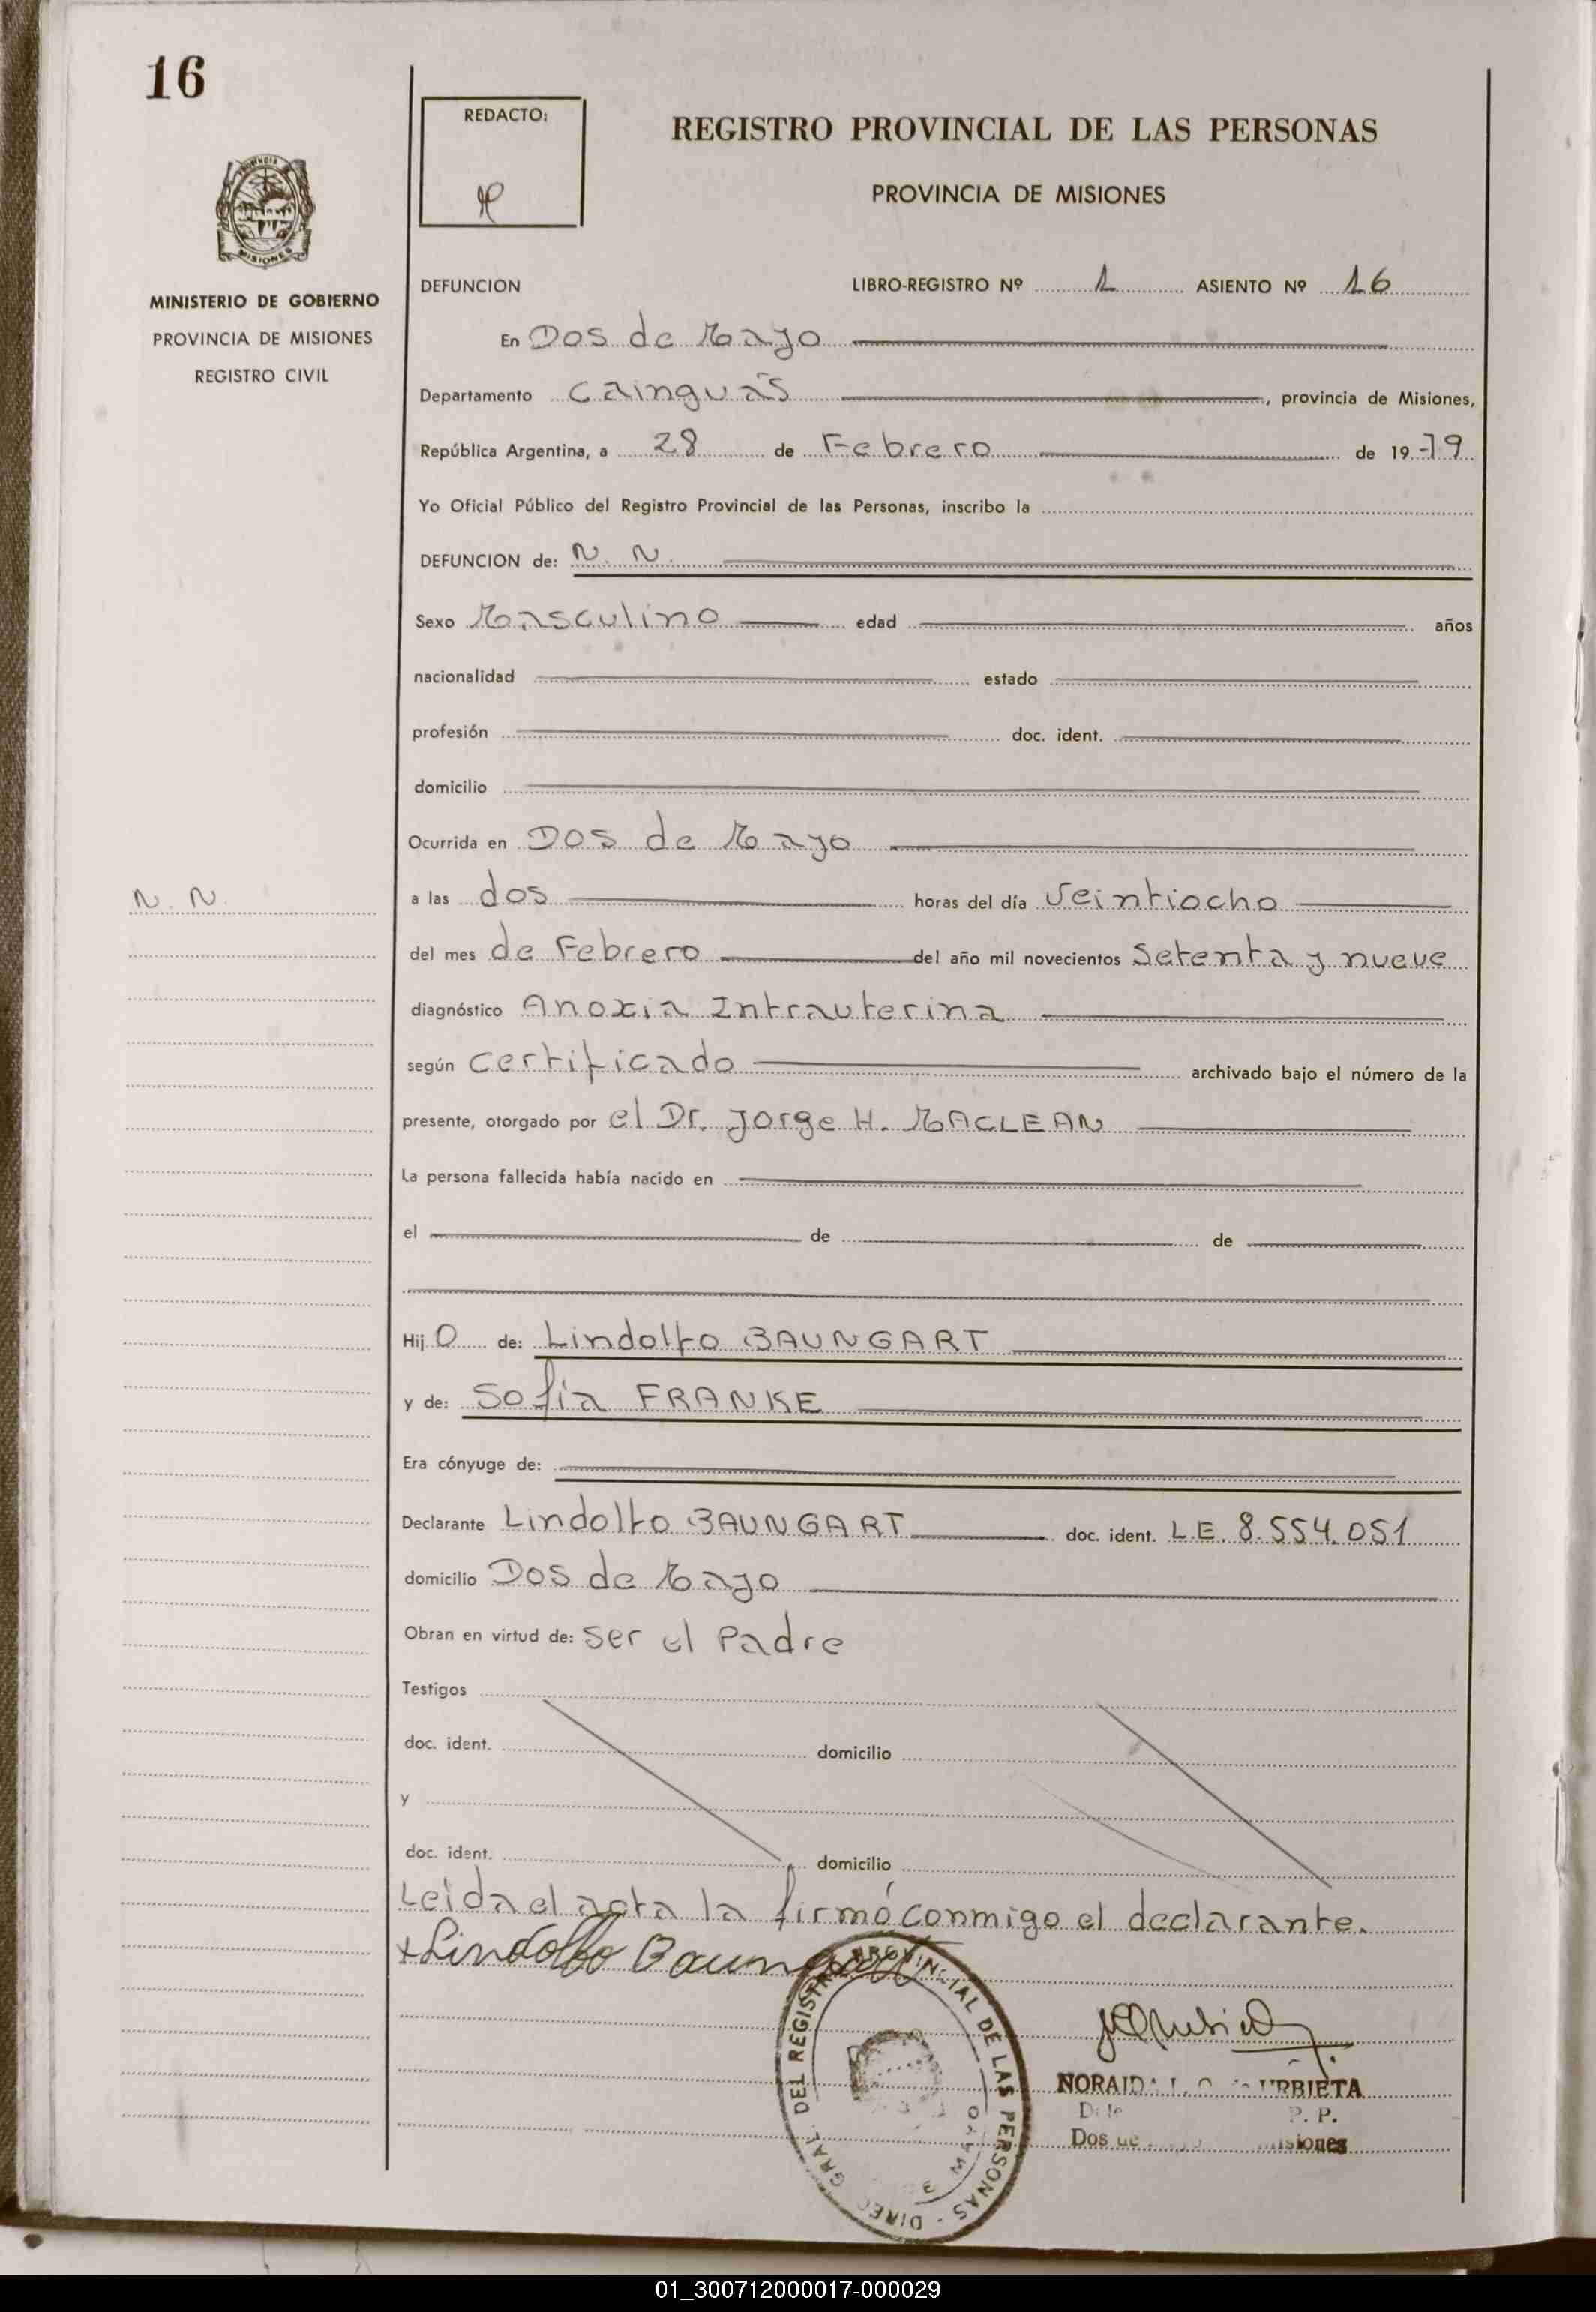 16
REDACTO:
REGISTRO PROVINCIAL DE LAS PERSONAS
PROVINCIA DE MISIONES
PROVINCIA
MISIONES
MINISTERIO DE GOBIERNO
PROVINCIA DE MISIONES
REGISTRO CIVIL
DEFUNCION LIBRO-REGISTRO Nº 1 ASIENTO Nº 16
En Dos de Mayo
Departamento Cainguás, provincia de Misiones,
República Argentina, a 28 de Febrero de 19 79
Yo Oficial Público del Registro Provincial de las Personas, inscribo la
DEFUNCION de: N. N.
Sexo Masculino edad años
nacionalidad estado
profesión doc. ident.
domicilio
Ocurrida en Dos de Mayo
N. N.
a las dos horas del día Veintiocho
del mes de Febrero del año mil novecientos Setenta y nueve
diagnóstico Anoxia Intrauterina
según certificado archivado bajo el número de la
presente, otorgado por el Dr. Jorge H. MACLEAN
La persona fallecida había nacido en
el de de
Hij o de: Lindolfo BAUNGART
y de: Sofia FRANKE
Era cónyuge de:
Declarante Lindolfo BAUNGART doc. ident. L.E. 8.554.051
domicilio Dos de Mayo
Obran en virtud de: ser el Padre
Testigos
doc. ident. domicilio
y
doc. ident. domicilio
Leida el acta la firmó conmigo el declarante.
+Lindolfo Baungart
DIREC. GRAL. DEL REGISTRO PROVINCIAL DE LAS PERSONAS
MAYO
URBIETA
P. P.
Dos de Misiones
01_300712000017-000029